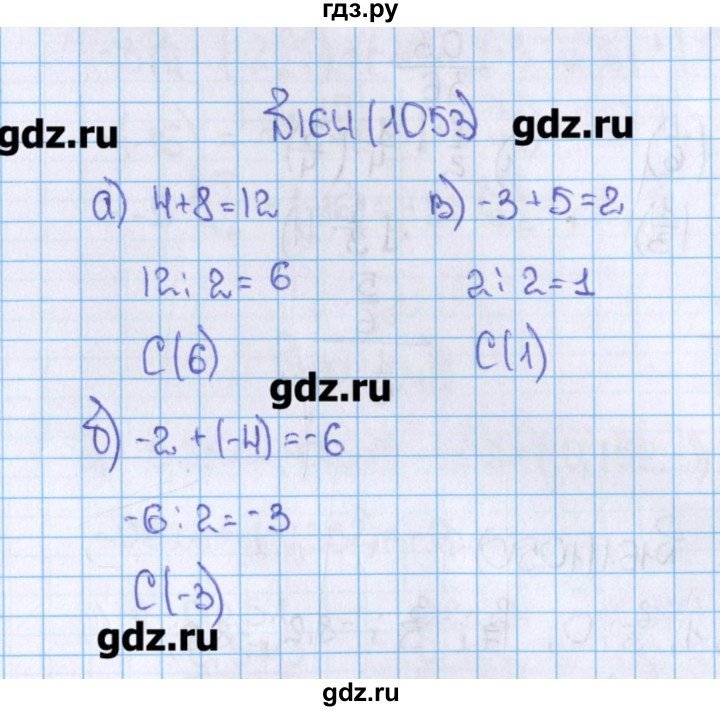 гдз.ру
№164 (1053)
gdz.ru
gdz.ru
а) 4+8=12
в) -3+5=2
12:2=6
2:2=1
С(6)
С(1)
gdz.ru
б) -2+(-4)=-6
-6:2=-3
С(-3)
gdz.ru
gdz.ru